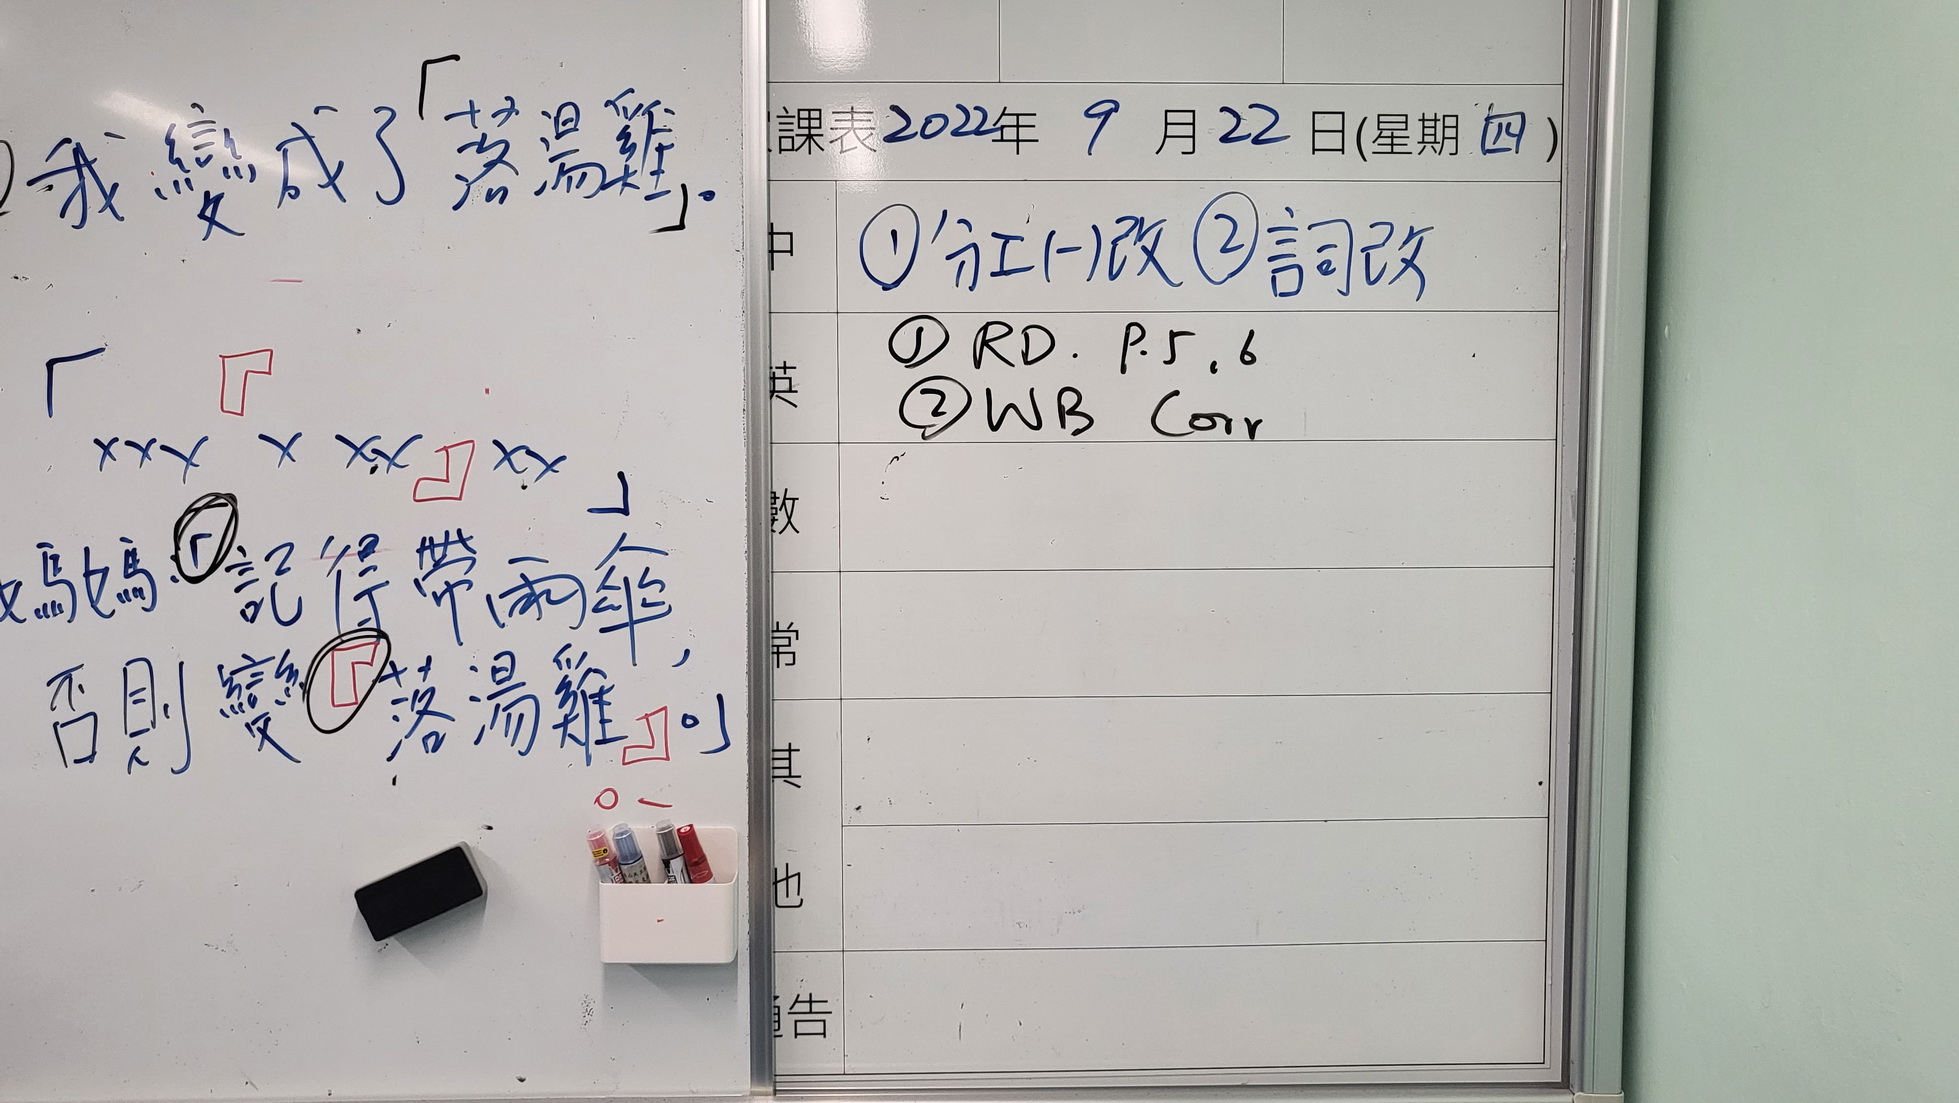 我變成了「落湯雞」。
「 『
xxx x xx 』 xx
」
媽媽:「記得帶雨傘,
否則變『落湯雞』。」
課表2022年 9 月 22 日(星期 四)
中 ① 分工(一)改 ② 詞改
英 ① RD. P.5, 6
② WB Corr
數
常
其
也
通告